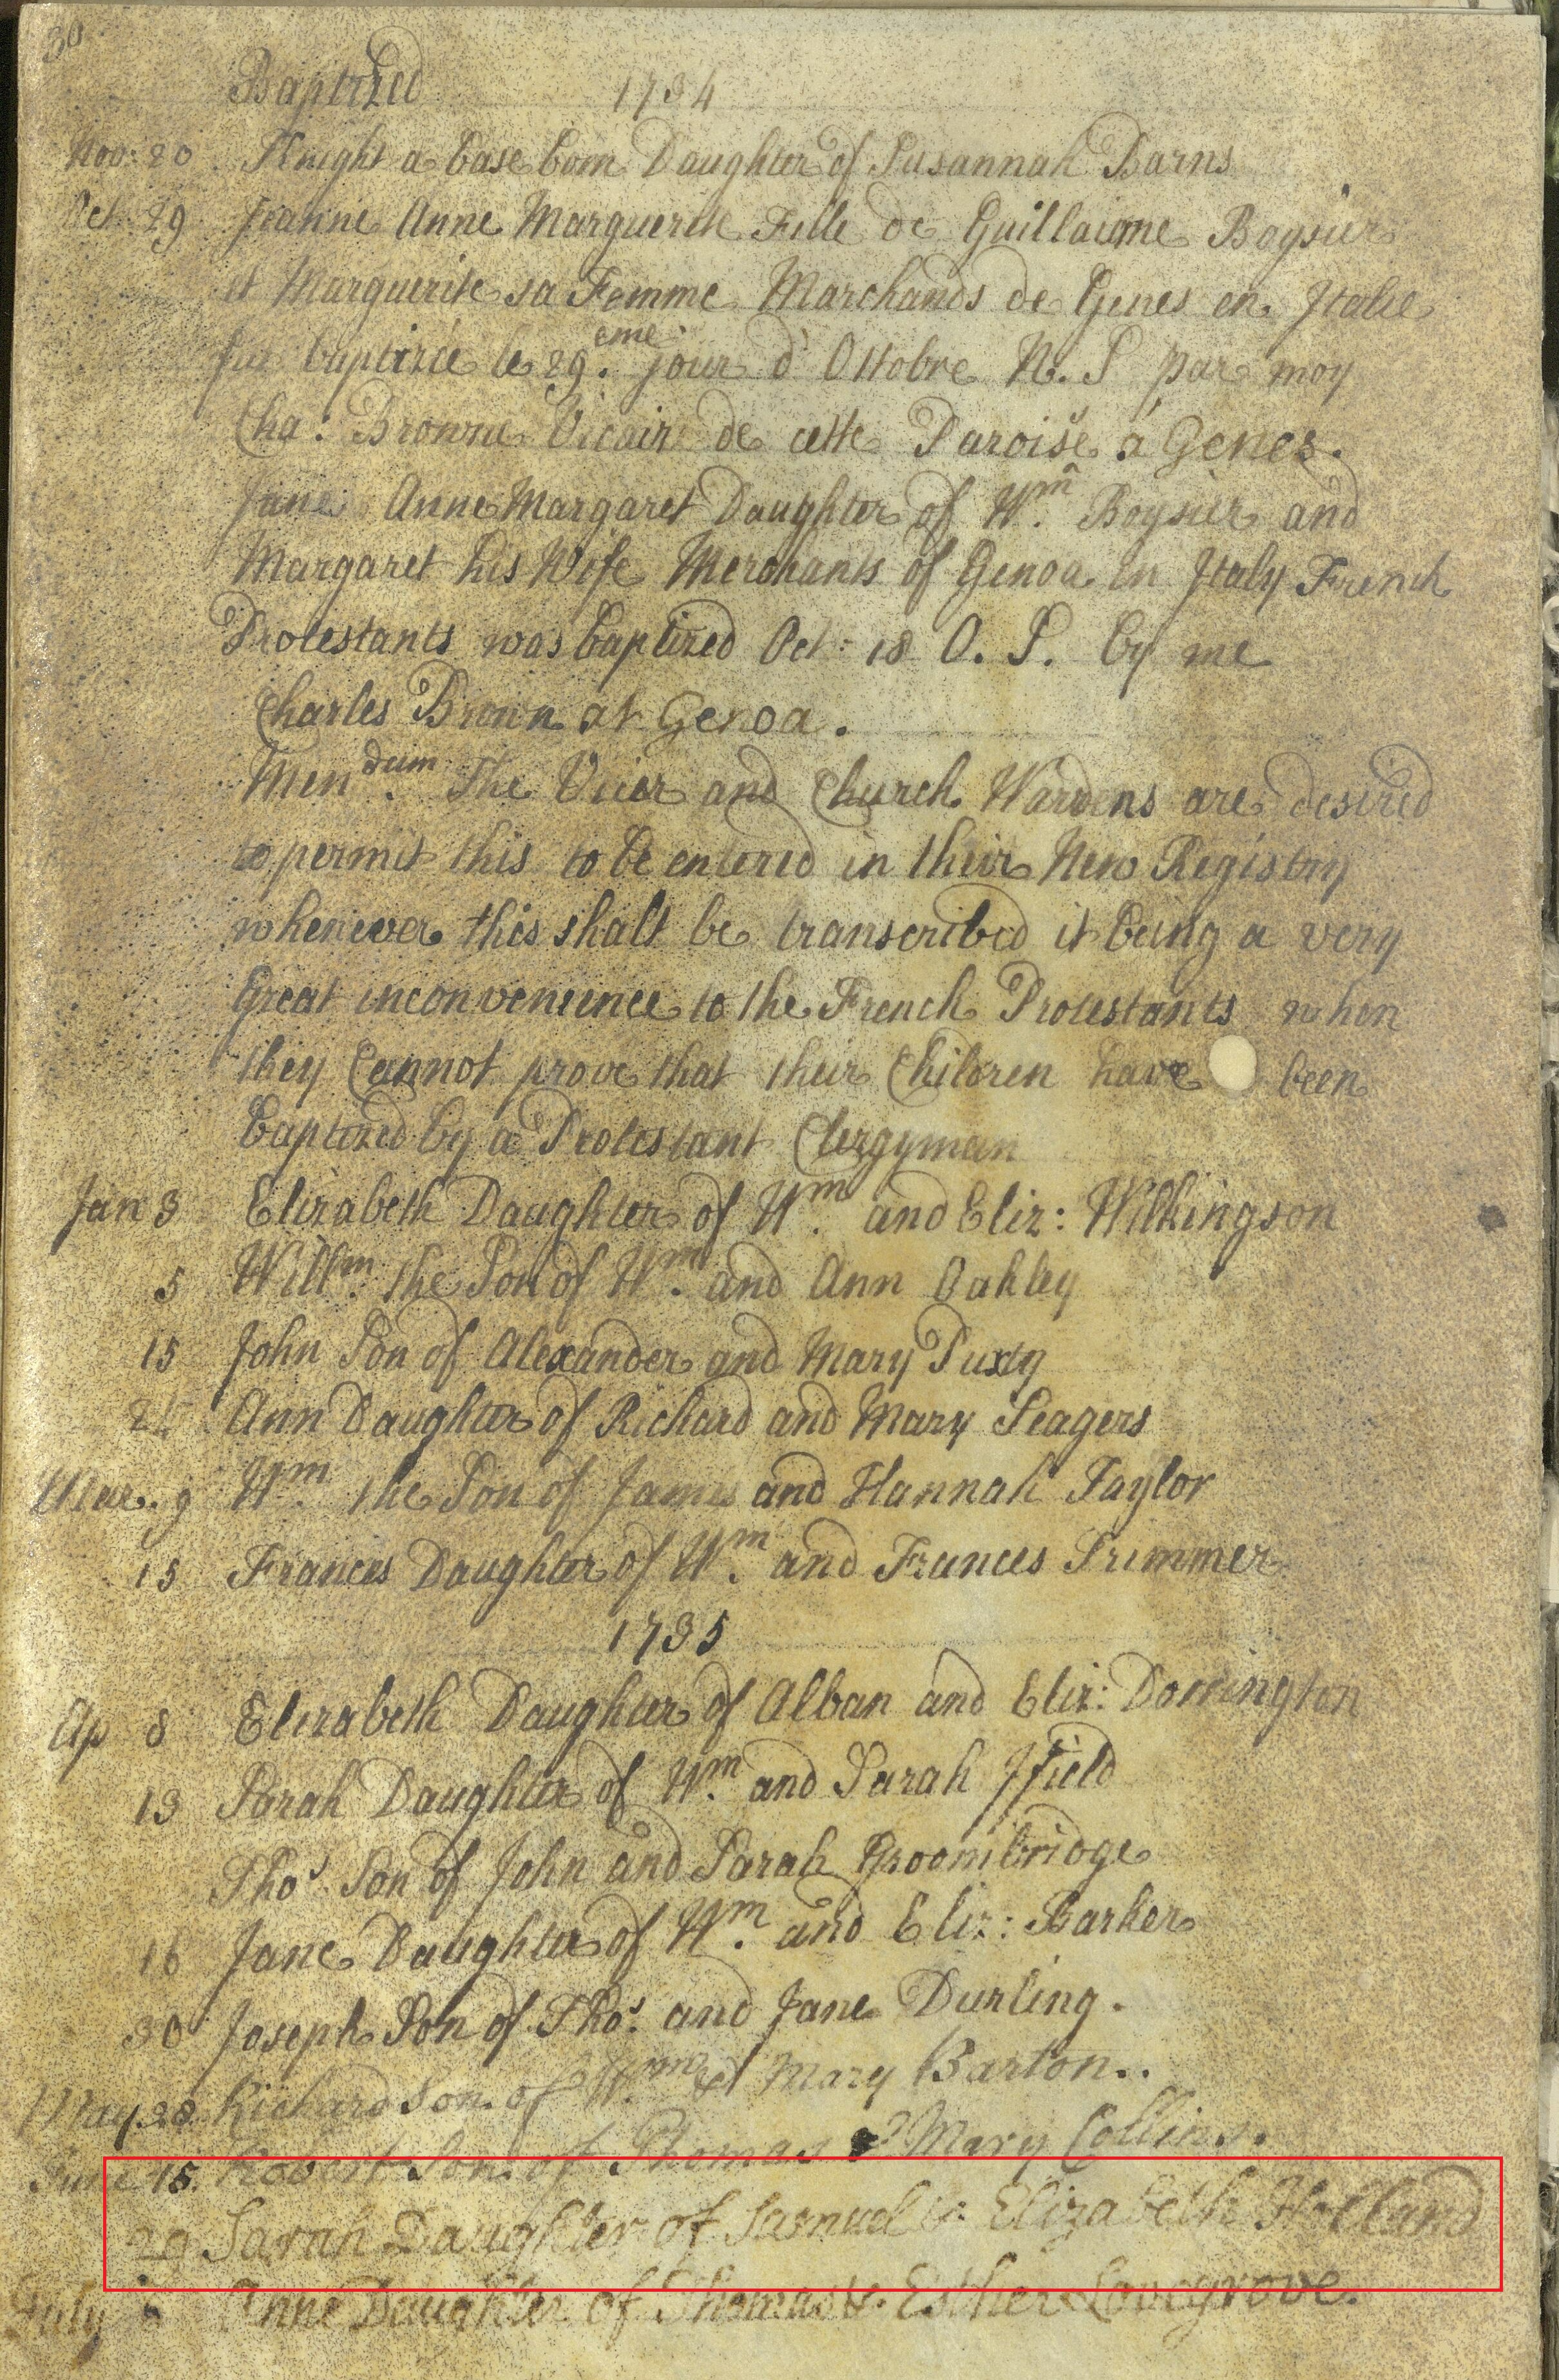 30
Baptized 1734
Nov: 20 Knight a base born Daughter of Susannah Barns
Oct. 29 Jeanne Anne Marguerite Fille de Guillaume Boysier
et Marguerite sa Femme Marchands de Genes en Italie
fut baptizée le 29.eme jour d' Ottobre N. S par moy
Cha: Browne Vicair de cette Paroise á Genes.
Jane Anne Margaret Daughter of Wm. Boysier and
Margaret his Wife Merchants of Genoa in Italy French
Protestants was baptized Oct: 18 O. S. by me
Charles Brown at Genoa.
Men.dum The Vicar and Church Wardens are desired
to permit this to be entered in their New Registry
whenever this shall be transcribed it being a very
Great inconvenience to the French Protestants when
they Cannot prove that their Children have been
baptized by a Protestant Clergyman
Jan 3 Elizabeth Daughter of Wm. and Eliz: Wilkingson
5 Willm. the Son of Wm. and Ann Oakley
15 John Son of Alexander and Mary Puxty
Ann Daughter of Richard and Mary Seagers
Mar. 9 Wm. the Son of James and Hannah Taylor
15 Frances Daughter of Wm. and Frances Trimmer
1735
Ap 8 Elizabeth Daughter of Alban and Eliz: Dorrington
13 Sarah Daughter of Wm. and Sarah Ifield
Thos. Son of John and Sarah Groombridge
16 Jane Daughter of Wm. and Eliz: Barker
30 Joseph Son of Thos. and Jane Durling.
May. 28. Richard Son of Wm. & Mary Barton..
June 15. Robert Son of Thomas & Mary Collins.
29 Sarah Daughter of Samuel &: Elizabeth Holland
July Anne Daughter of Thomas &: Esther Lovegrove.